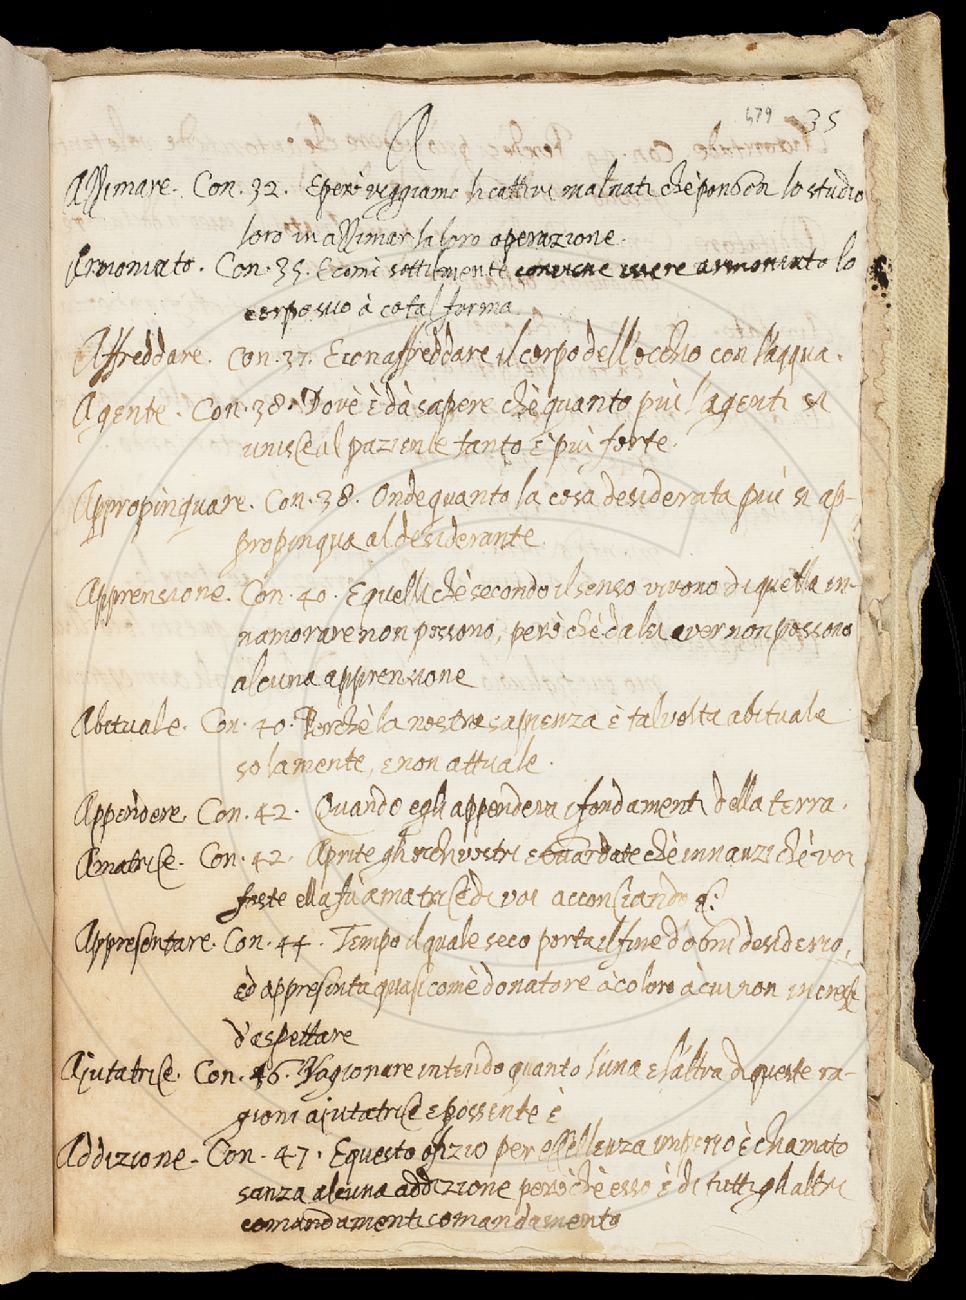 479 35
A
Assimare. Con. 32. E però veggiamo li cattivi malnati chè ponson lo studio
loro in assimar la loro operazione.
Armoniato. Con. 35. E com'è sottilmente conviene essere armoniato lo
corpo suo à cotal forma.
Affreddare. Con. 37. E con affreddare il corpo dell'occhio con l'acqua.
Agente. Con. 38. Dov'è è dà sapere chè quanto più l'agenti si
unisce al paziente tanto è più forte.
Appropinquare. Con. 38. Onde quanto la cosa desiderata più si ap-
propinqua al desiderante.
Apprensione. Con. 40. E quelli chè secondo il senso vivono di quella in-
namorare non possono, però chè da lei aver non possono
alcuna apprensione
Abituale. Con. 40. Perchè la nostra sapienza è talvolta abituale
solamente, e non attuale.
Appendere. Con. 42. Quando egli appendeva i fondamenti della terra.
Amatrice. Con. 42. Aprite gli occhi vostri e guardate chè innanzi chè voi
foste ella fù amatrice di voi acconciando &c.
Appresentare. Con. 44. Tempo il quale seco porta il fine d'ogni desiderio,
ed appresenta quasi com'è donatore à coloro à cui non incresce
d'aspettare
Ajutatrice. Con. 46. Ragionare intendo quanto l'una e l'altra di queste ra-
gioni ajutatrice e possente è
Addizione. Con. 47. E questo ofizio per eccellenza imperio è chiamato
sanza alcuna addizione però chè esso è di tutti gli altri
comandamenti comandamento